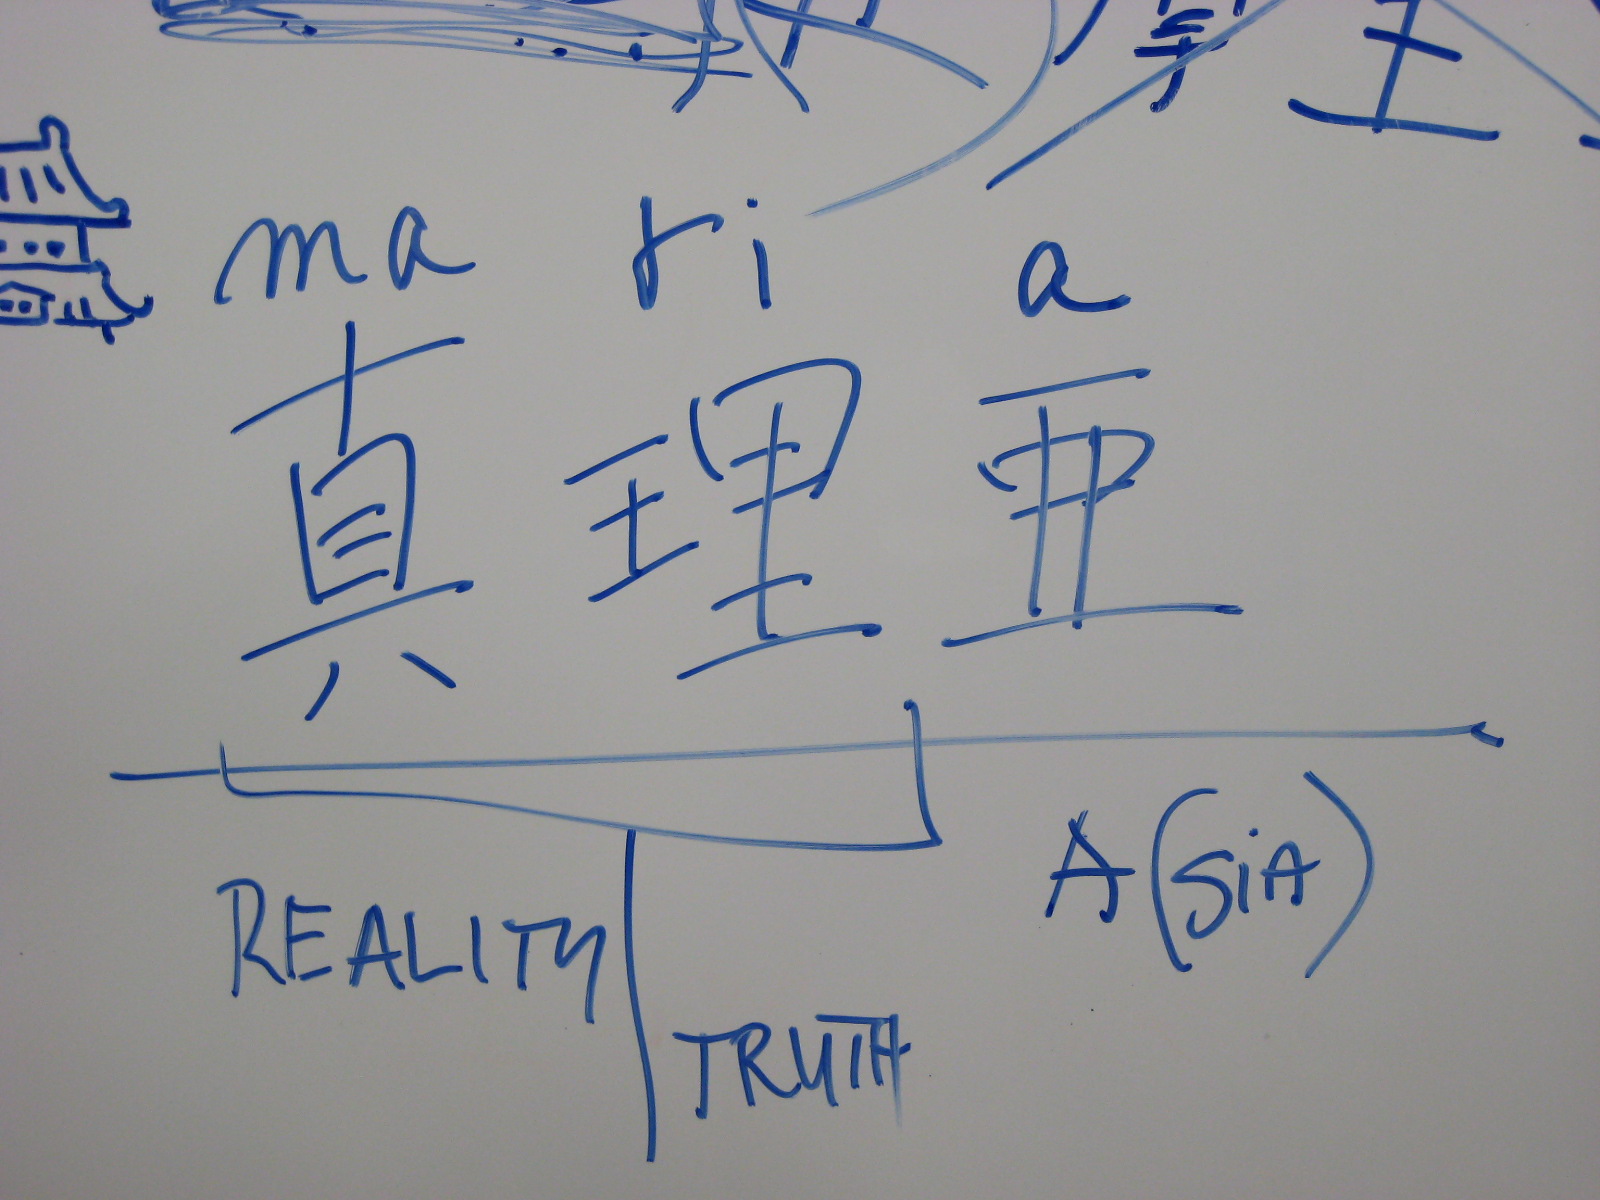 ma ri a
真 理 亜
A(SiA)
REALITY
TRUTH